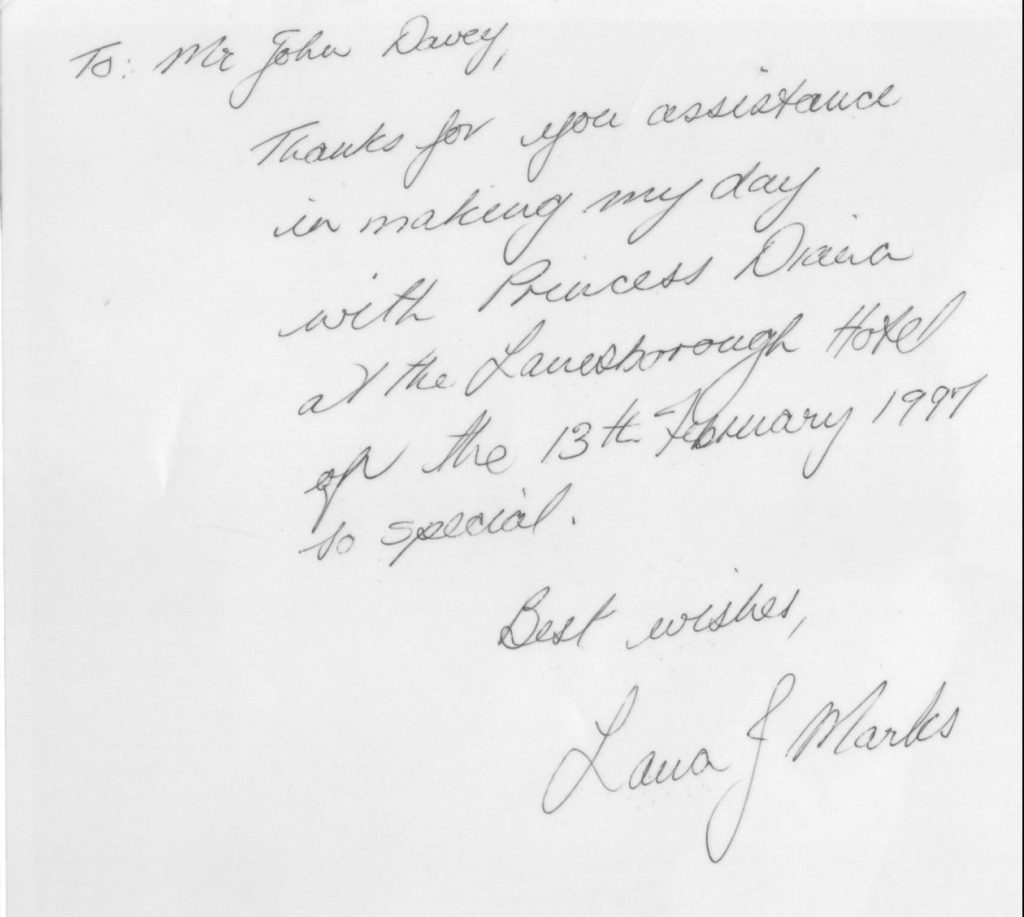 To: Mr John Davey,
Thanks for you assistance
in making my day
with Princess Diana
at the Lanesborough Hotel
of the 13th February 1997
so special.
Best wishes,
Lana J Marks